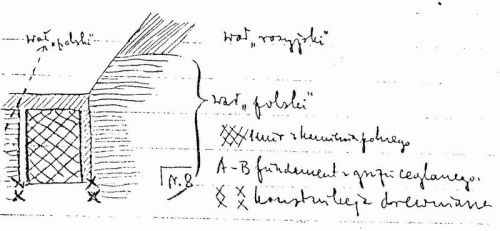 wał „polski"
wał „rosyjski"
wał „polski"
mur z kamienia polnego
A-B fundament z gruzu ceglanego.
r. 8
x x konstrukcja drewniana